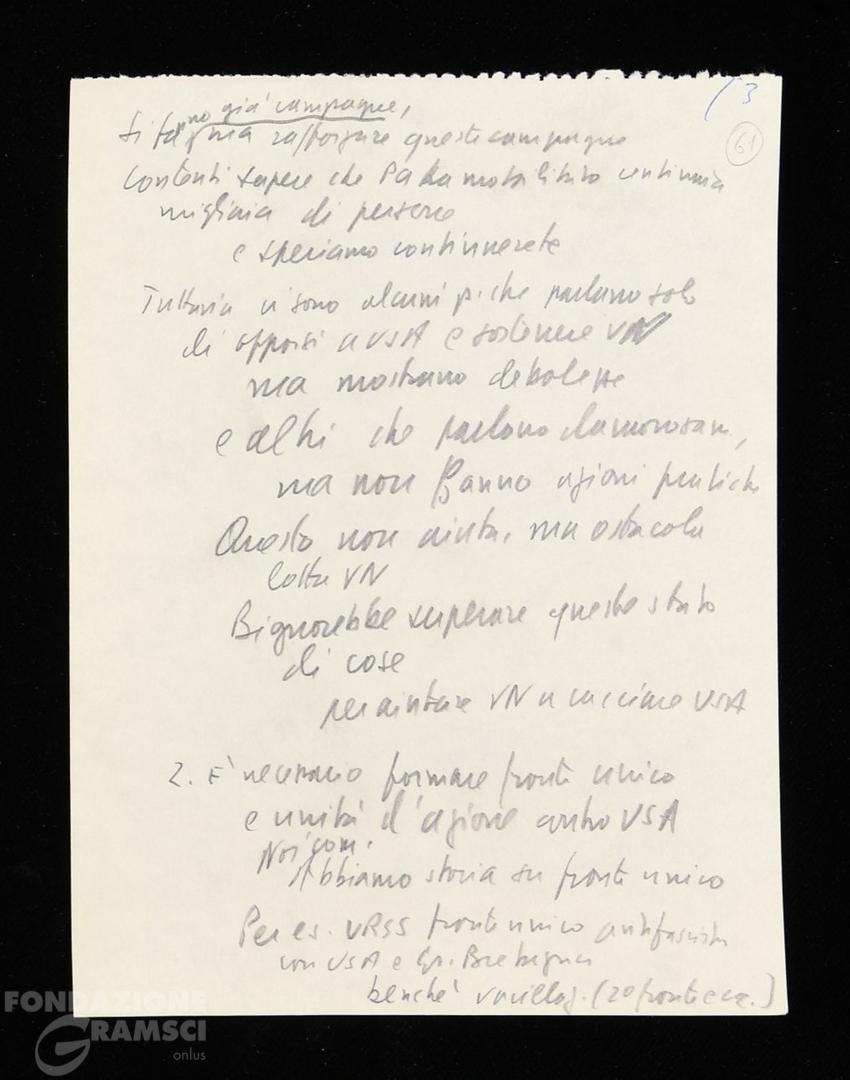 (3
61
no già campagne,
Si fa ma rafforzare queste campagne
Contenti sapere che mobilitato centinaia
migliaia di persone
e speriamo continuerete
Tuttavia vi sono alcuni p. che parlano solo
di opporsi a USA e sostenere VN
ma mostrano debolezze
e altri che parlano clamorosam,
ma non fanno azioni pratiche
Questo non aiuta, ma ostacola
lotta VN
Bisognerebbe superare questo stato
di cose
per aiutare VN a cacciare USA
2. E' necessario formare fronte unico
e unità d'azione contro USA
Noi com.
Abbiamo storia su fronte unico
Per es. URSS fronte unico antifascista
con USA e Gr. Bretagna
benché vacillaz. (2o fronte ecc.)
FONDAZIONE
GRAMSCI
onlus